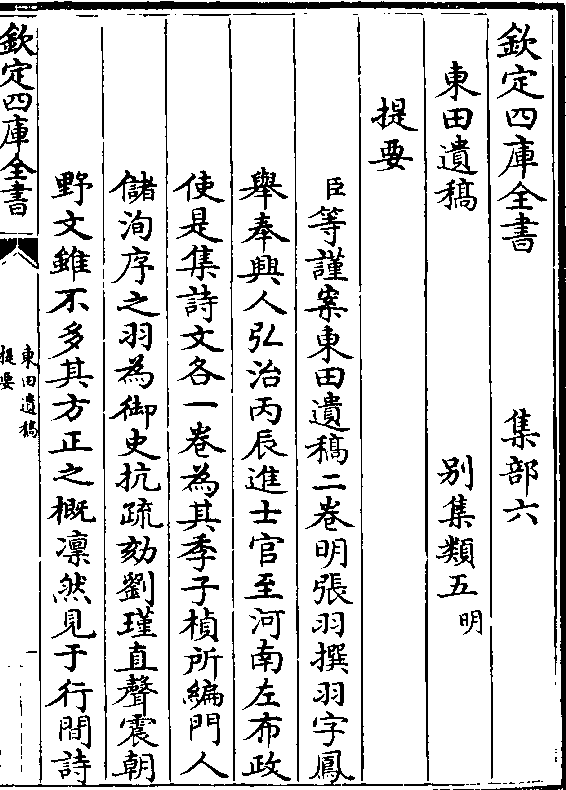 欽定四庫全書　集部六
東田遺稿　別集類五明
提要
臣等謹案東田遺稿二卷明張羽撰羽字鳳
舉奉興人弘治丙辰進士官至河南左布政
使是集詩文各一卷為其季子楨所編門人
儲洵序之羽為御史抗疏劾劉瑾直聲震朝
野文雖不多其方正之概凜然見于行間詩
欽定四庫全書
東田遺稿
提要
一